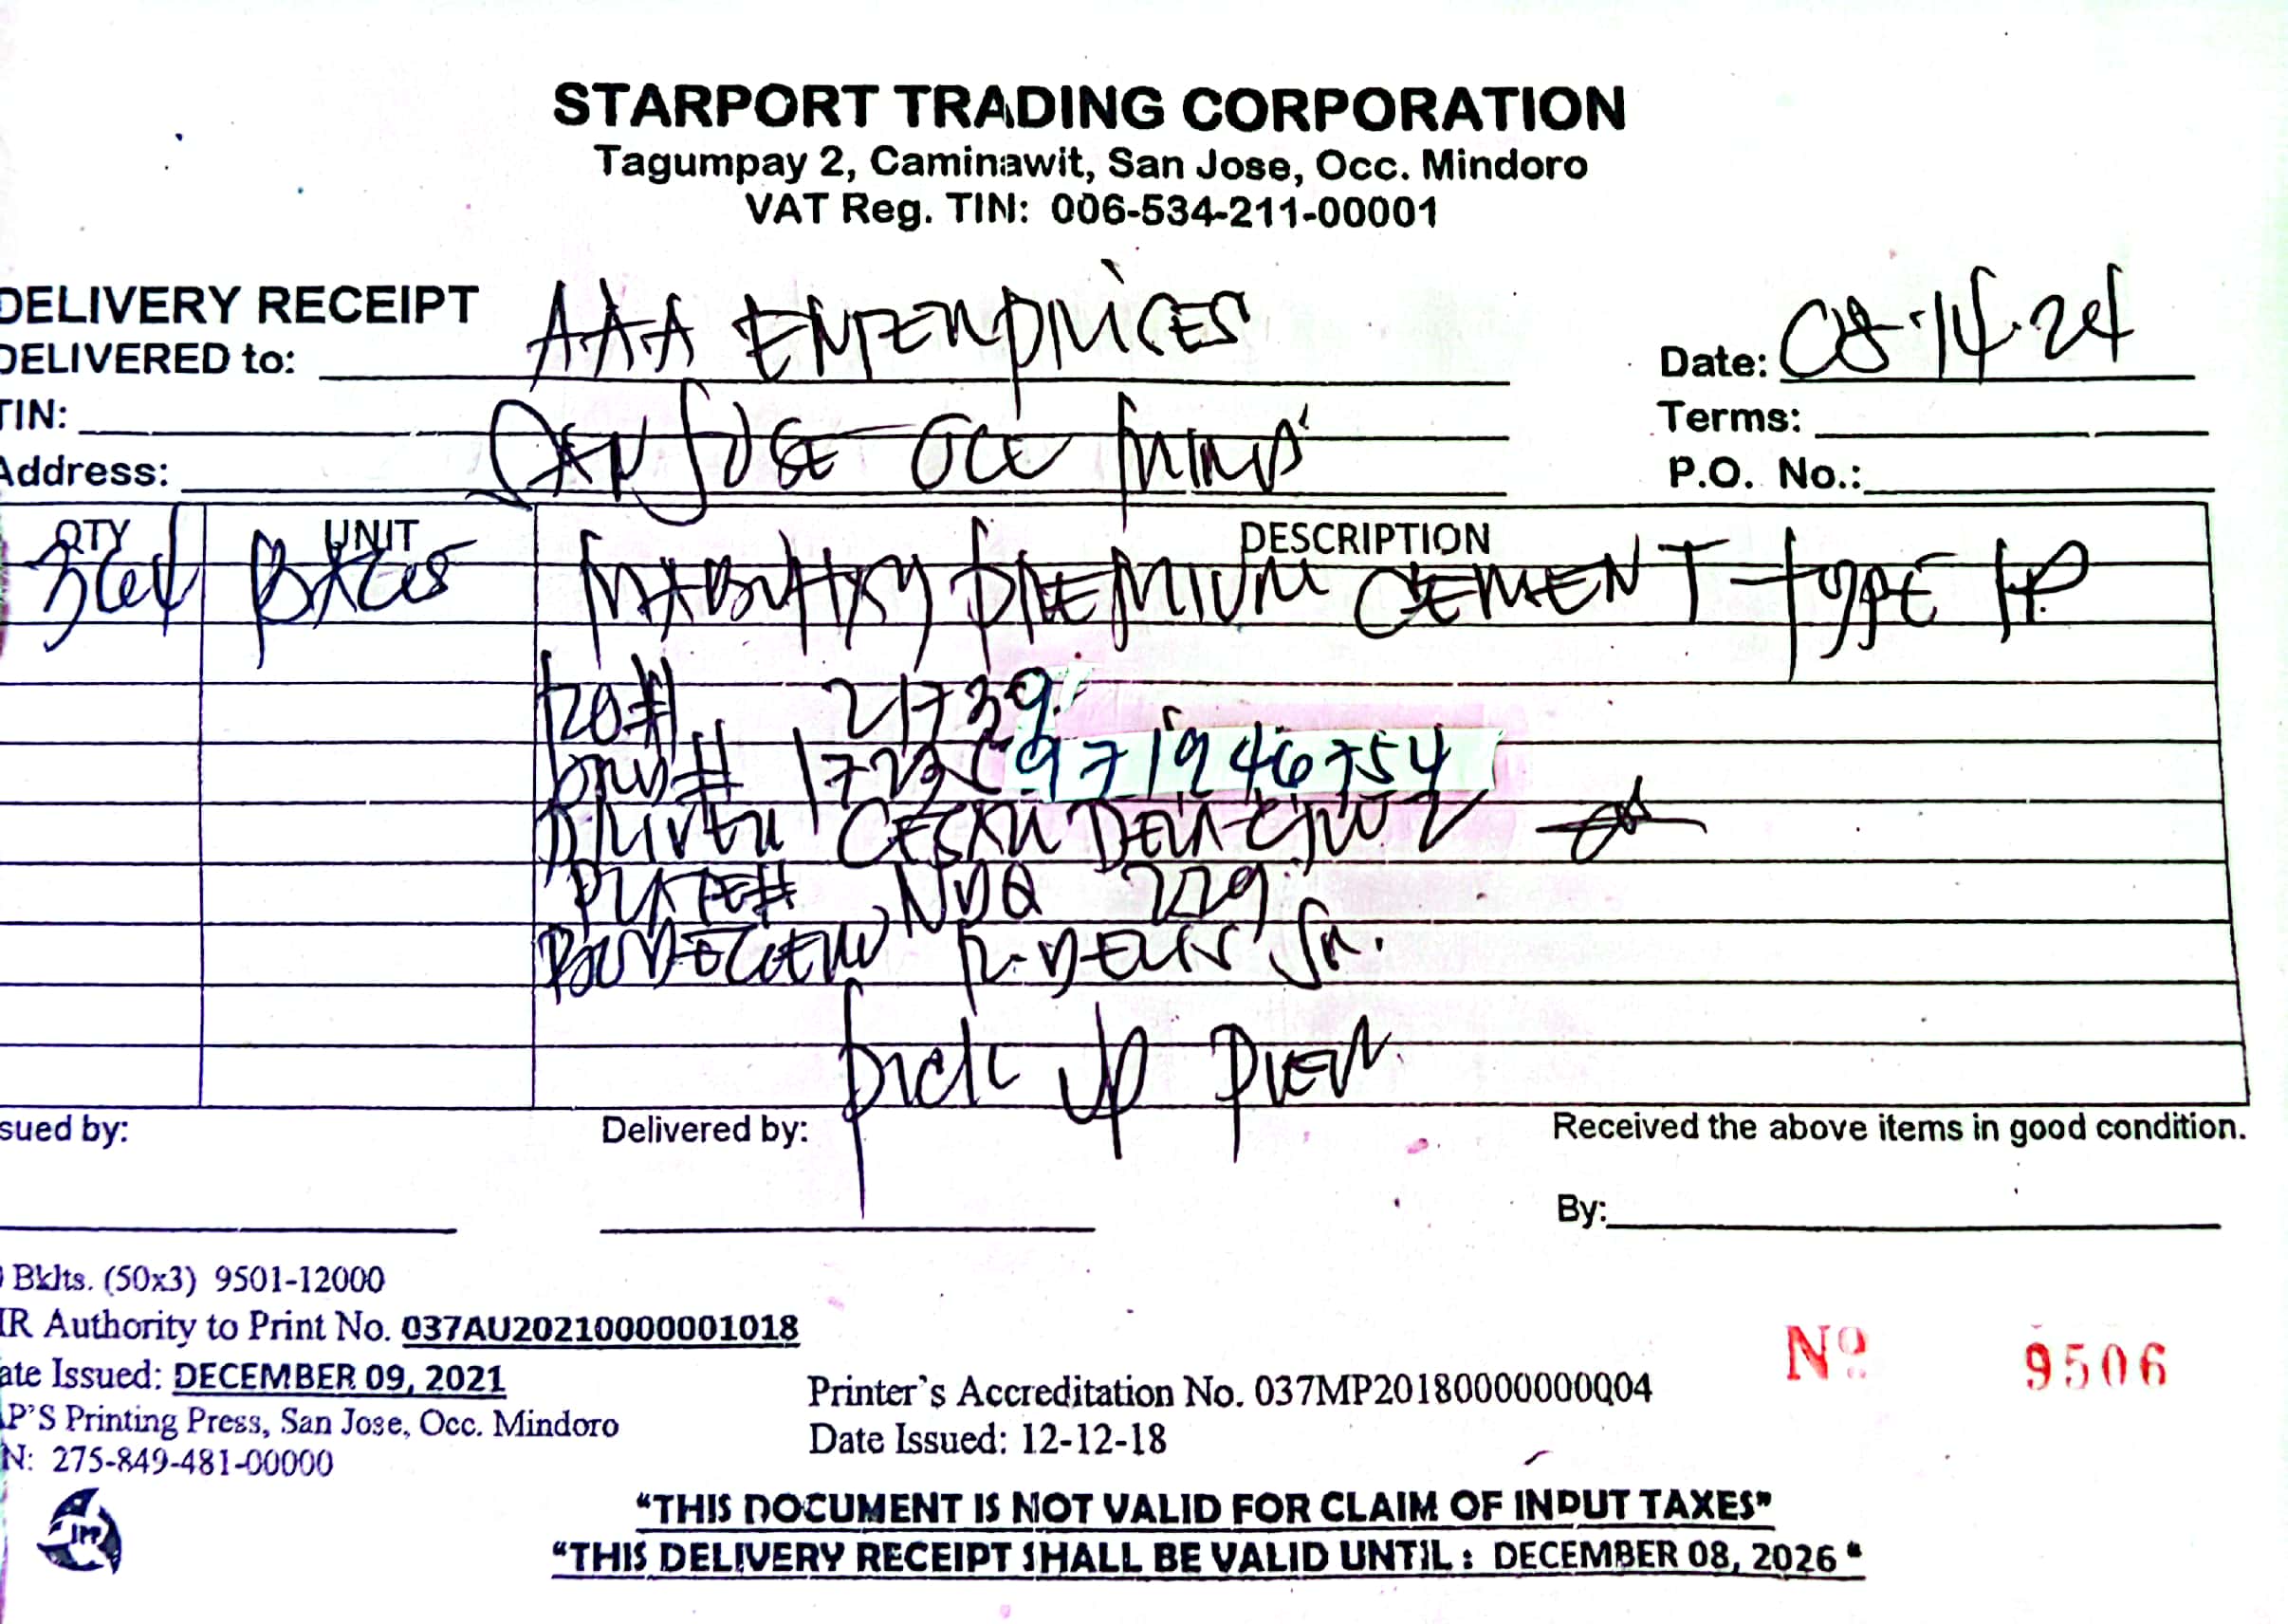 STARPORT TRADING CORPORATION
Tagumpay 2, Caminawit, San Jose, Occ. Mindoro
VAT Reg. TIN: 006-534-211-00001
DELIVERY RECEIPT
DELIVERED to: AAA ENTERPRICES
Date: 08-14-24
TIN:
Terms:
Address: SAN JOSE OCC
P.O. No.:
QTY UNIT DESCRIPTION
BAGS PREMIUM CEMENT TYPE 1P
# 21739
# 971946754
DRIVER
PLATE# 229
Jr.
Pick up Pier
sued by:
Delivered by:
Received the above items in good condition.
By:
Bklts. (50x3) 9501-12000
IR Authority to Print No. 037AU20210000001018
ate Issued: DECEMBER 09, 2021
P'S Printing Press, San Jose, Occ. Mindoro
N: 275-849-481-00000
Printer's Accreditation No. 037MP20180000000Q04
Date Issued: 12-12-18
Nº 9506
JPP
"THIS DOCUMENT IS NOT VALID FOR CLAIM OF INPUT TAXES"
"THIS DELIVERY RECEIPT SHALL BE VALID UNTIL : DECEMBER 08, 2026 "